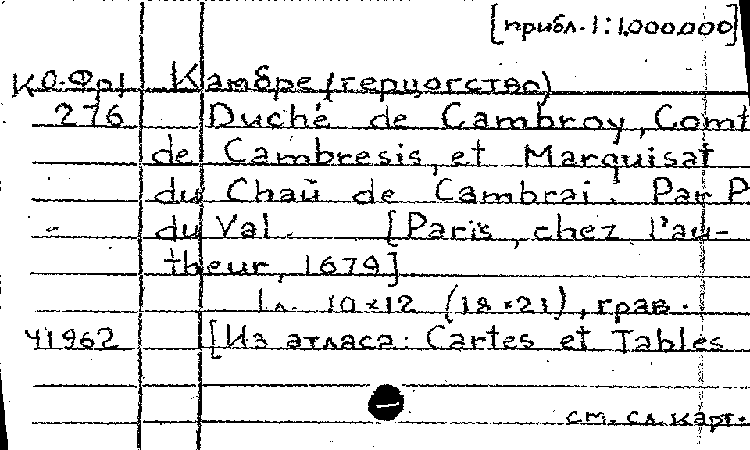 [прибл. 1:1.000.000]
К О-Фр1 Камбре (герцогство)
276 Duché de Cambroy, Comt
de Cambresis, et Marquisat
du Chaũ de Cambrai. Par P.
du Val. [Paris, chez l'au-
theur, 1679]
1 л. 10×12 (18×21), грав.
Ч1962 [Из атласа: Cartes et Tables
см. сл. карт.